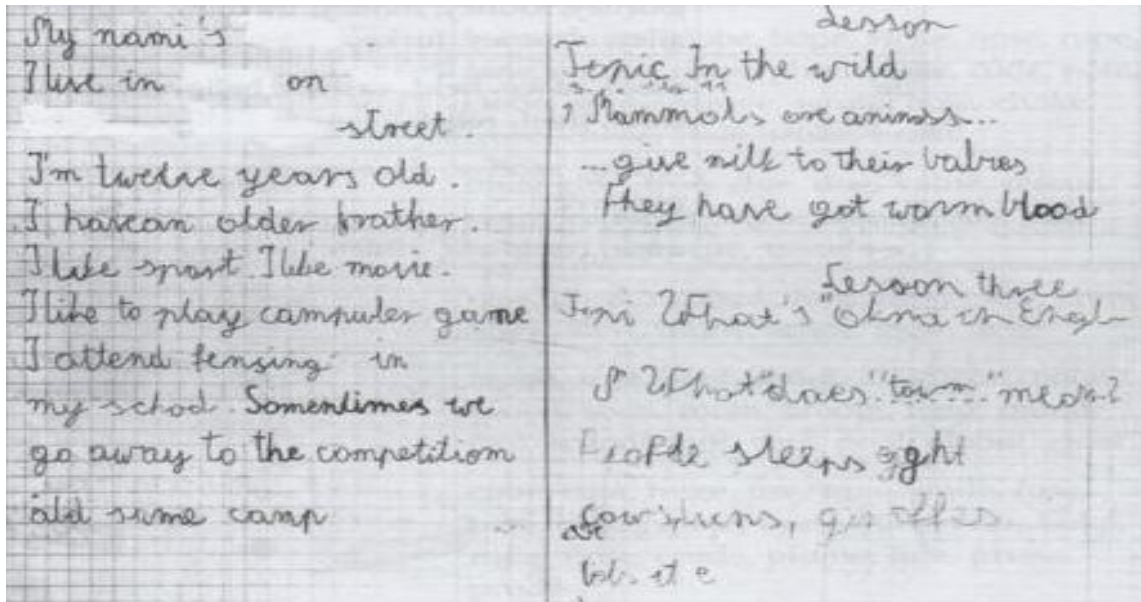 My nami's
I live in on
street.
I'm twelve years old.
I havean older brather.
I like sport I like movie.
I like to play campuler game
I attend fensing in
my schod. Somentimes we
go away to the competitiom
add same camp
Lesson
Topic In the wild
Mammals are animss...
...give milk to their babies
They have got warm blood
Lesson three
What's "Okna in Engl
What "does "town" mean?
People sleeps eght
cows, lions, giraffes